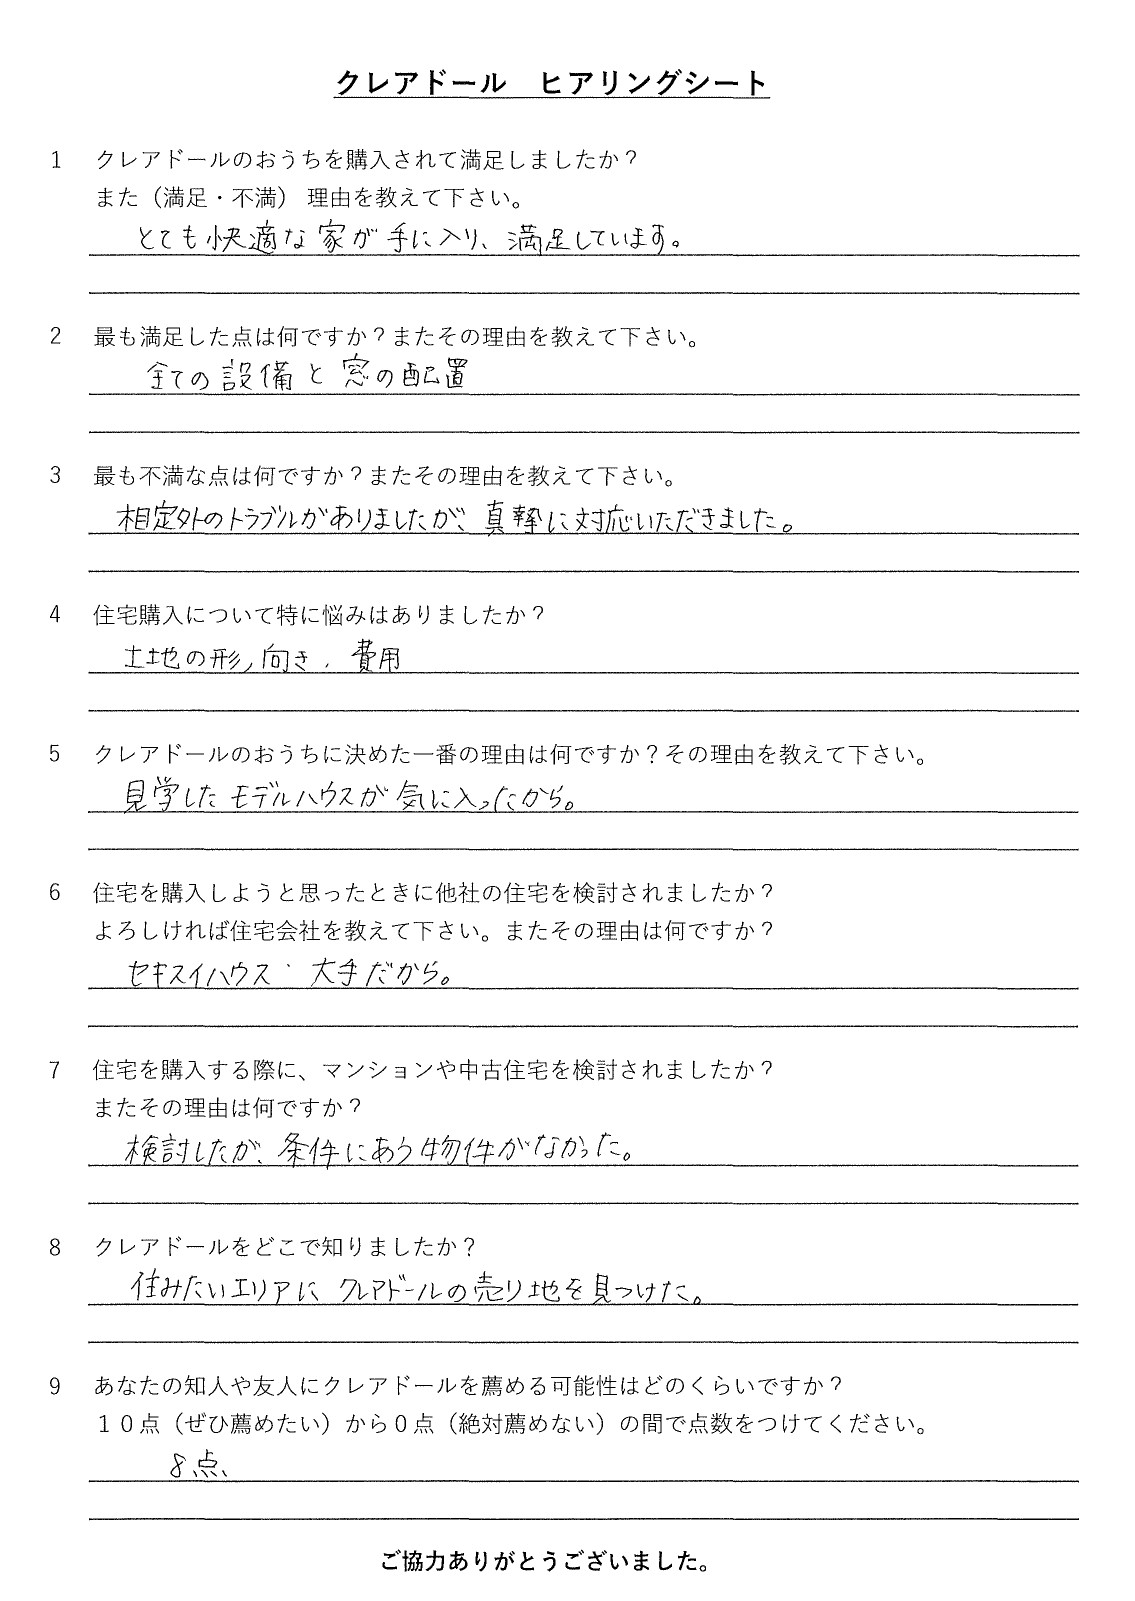 クレアドール　ヒアリングシート
1　クレアドールのおうちを購入されて満足しましたか？
また（満足・不満） 理由を教えて下さい。
とても快適な家が手に入り、満足しています。
2　最も満足した点は何ですか？またその理由を教えて下さい。
全ての設備と窓の配置
3　最も不満な点は何ですか？またその理由を教えて下さい。
相定外のトラブルがありましたが、真摯に対応いただきました。
4　住宅購入について特に悩みはありましたか？
土地の形、向き、費用
5　クレアドールのおうちに決めた一番の理由は何ですか？その理由を教えて下さい。
見学したモデルハウスが気に入ったから。
6　住宅を購入しようと思ったときに他社の住宅を検討されましたか？
よろしければ住宅会社を教えて下さい。またその理由は何ですか？
セキスイハウス・大手だから。
7　住宅を購入する際に、マンションや中古住宅を検討されましたか？
またその理由は何ですか？
検討したが、条件にあう物件がなかった。
8　クレアドールをどこで知りましたか？
住みたいエリアにクレアドールの売り地を見つけた。
9　あなたの知人や友人にクレアドールを薦める可能性はどのくらいですか？
１０点（ぜひ薦めたい）から０点（絶対薦めない）の間で点数をつけてください。
8点、
ご協力ありがとうございました。